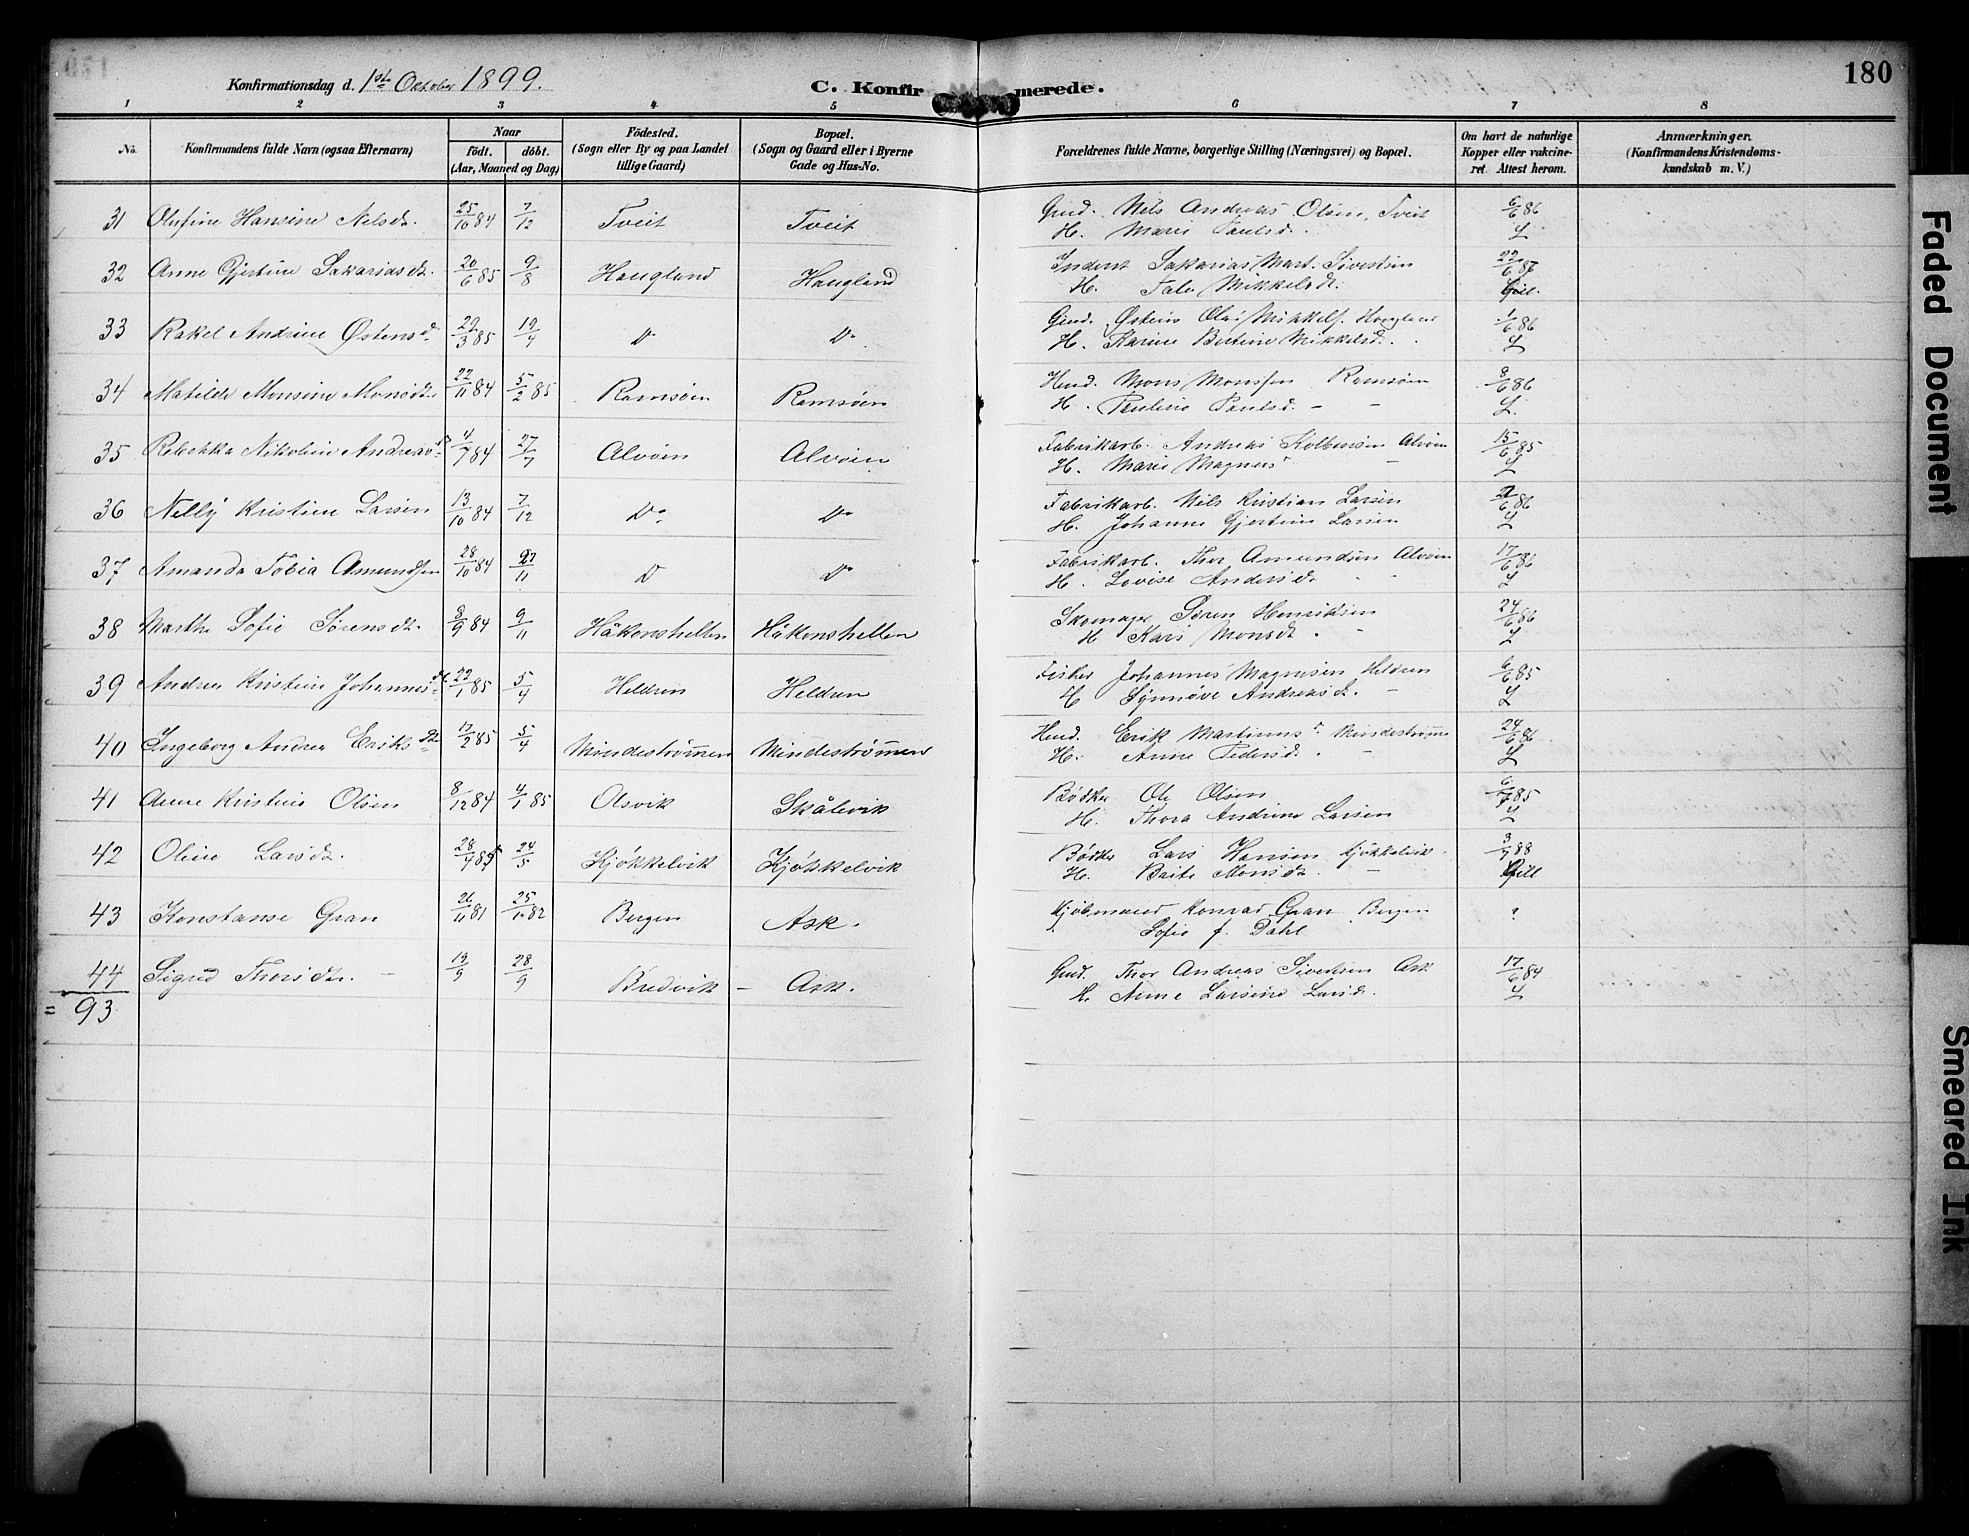 Konfirmationsdag d. 1ste Oktober 1899. C. Konfirmerede. 180
1 2 3 4 5 6 7 8
No. Konfirmandens fulde Navn (ogsaa Efternavn) Naar født. døbt. (Aar, Maaned og Dag) Fødested. (Sogn eller By og paa Landet tillige Gaard) Bopæl. (Sogn og Gaard eller i Byerne Gade og Hus-No. Forældrenes fulde Navne, borgerlige Stilling (Næringsvei) og Bopæl. Om havt de naturlige Kopper eller vakcineret. Attest herom. Anmærkninger. (Konfirmandens Kristendomskundskab m. V.)
31 Olufine Hansine Nelsdt. 25/10 84 7/12 Tveit Tveit Gmd. Nils Andreas Olsen, Tveit 6/6 86
H. Marie Paulsd.
32 Anne Gjertine Sakariasdt. 20/6 85 9/8 Haugland Haugland Inderst Sakarias Mart. Sivertsen 22/6 87
H. Mikkelsdt.
33 Rakel Andrine Østensd. 29/3 85 19/4 Do Do Gmd. Østen Olai Mikkels. Haugland 1/6 86
H. Karine Bertine Mikkelsd.
34 Matilde Monsine Monsdt. 22/11 84 5/2 85 Ramsøen Ramsøen Husmd. Mons Monssen Ramsøen 8/6 86
H. Pauline Paulsd. - -
35 Rebekka Nikoline Andreasdt. 4/7 84 27/7 Alvøen Alvøen Fabrikarb. Andreas Kolbensen Alvøen 15/6 85
H. Marie Magnus
36 Nelly Kristine Larsen 13/10 84 7/12 Do. Do Fabrikarb. Nils Kristian Larsen 2/6 86
H. Johanne Gjertine Larsen
37 Amanda Tobia Amundsen 28/10 84 27/11 D Do Fabrikarb. Thor Amundsen Alvøen 17/6 86
H. Lovise Andersdt.
38 Marthe Sofie Sørensdt. 8/9 84 9/11 Håkonshellen Håkonshellen Skomager Søren Henriksen 24/6 86
H Kari Monsdt.
39 Andrea Kristine Johannesdt. 22/1 85 5/4 Heldren Heldren Fisker Johannes Magnusen Heldren 6/6 85
H Synnøve Andreasdt.
40 Ingeborg Andrea Eriksdtr 17/2 85 5/4 Mindestrømmen Mindestrømmen Husmd. Erik Martinus Mindestrømme 24/6 86
H. Anne Pedersd.
41 Anne Kristine Olsen 8/12 84 4/1 85 Olsvik Skålevik Bødker Ole Olsen 85
H. Thora Andrine Larsen
42 Oline Larsdt. 28/ 85 24/5 Kjøkkelvik Kjøkkelvik Bødker Lars Hansen Kjøkkelvik 3/7 88
H. Brite Monsdt. -
43 Konstanse Gran 26/11 81 25/1 82 Bergen Ask. Kjøbmand Konrad Gran Bergen ?
Sofie f. Dahl
44 Sigrid Thorsdtr. - 19/9 28/9 Bredvik - Ask. Gmd. Thor Andreas Sivertsen Ask 17/6 84
H. Anne Larsine Larsd.
= 93
Faded Document
Smeared Ink